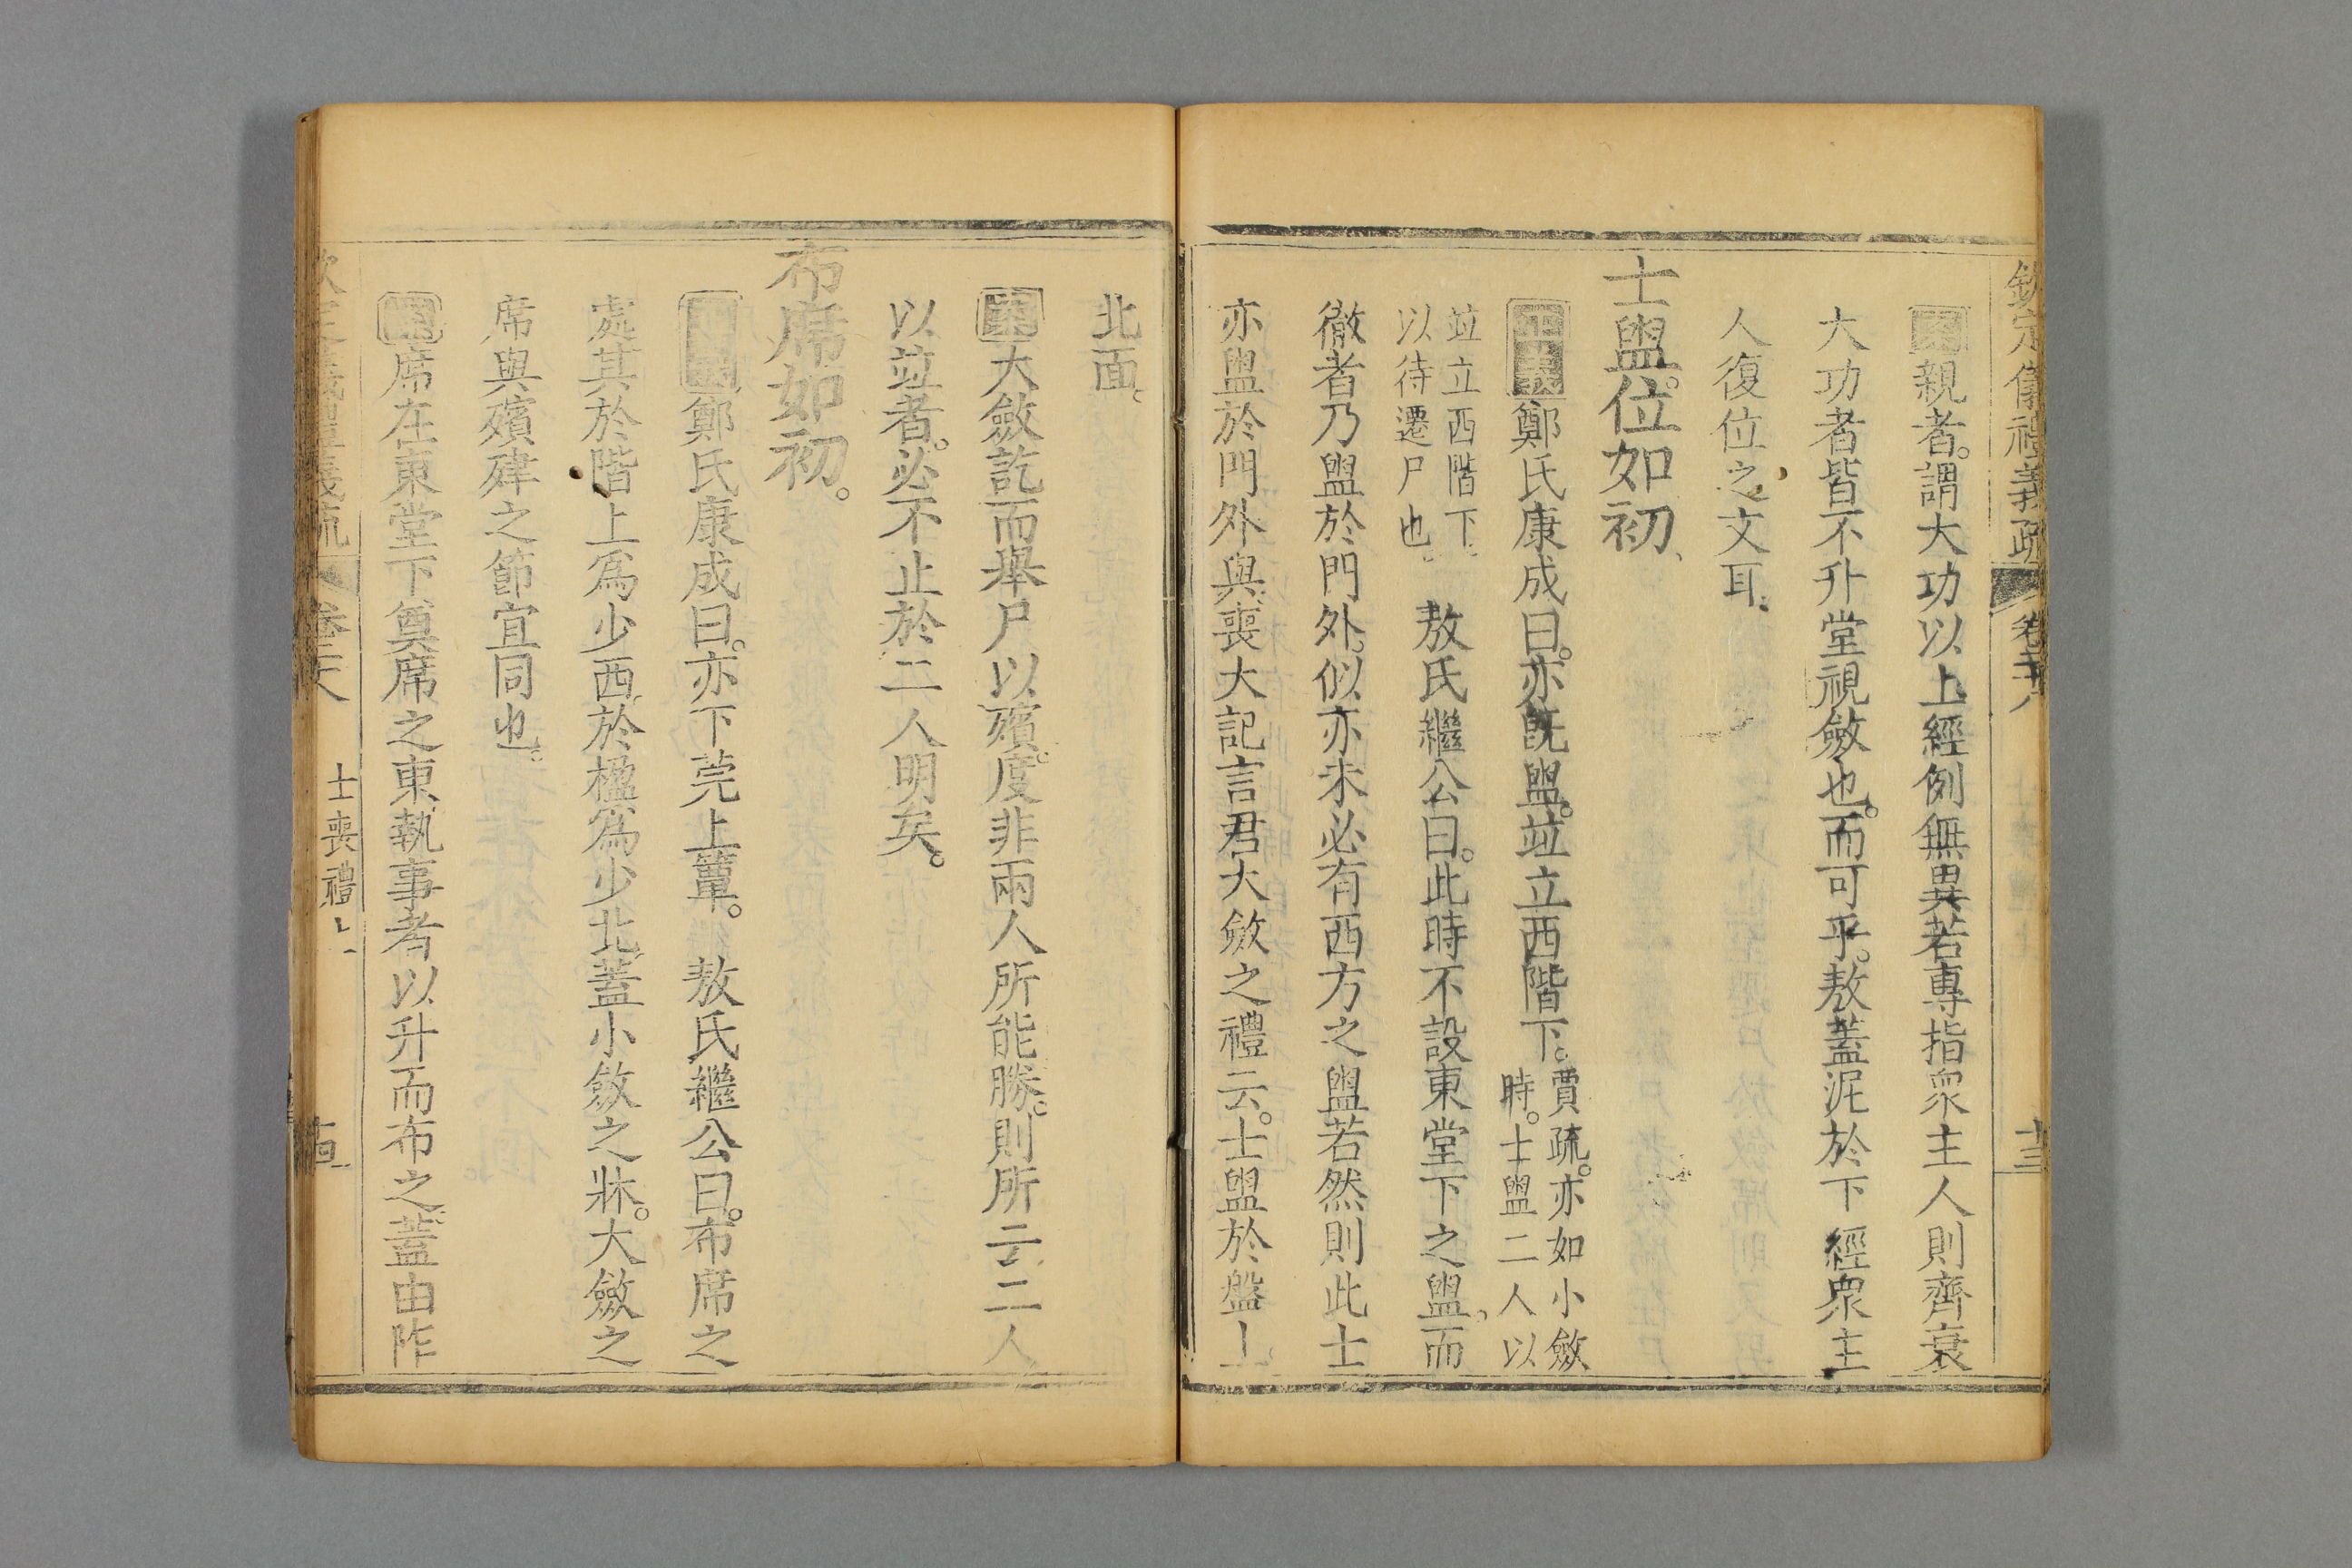 欽定儀禮義疏 卷二十八 十三
案親者。謂大功以上經例無異若專指衆主人則齊衰
大功者皆不升堂視斂也。而可乎。敖蓋泥於下經衆主
人復位之文耳。
士盥。位如初、
正義鄭氏康成曰。亦旣盥。竝立西階下。賈疏。亦如小斂
時。士盥二人以
竝立西階下
以待遷尸也。 敖氏繼公曰。此時不設東堂下之盥。而
徹者乃盥於門外。似亦未必有西方之盥若然則此士
亦盥於門外與。喪大記言君大斂之禮云。士盥於盤上
北面。
案大斂訖而舉尸以殯。度非兩人所能勝。則所云二人
以竝者。必不止於二人明矣。
布席如初。
正義鄭氏康成曰。亦下莞上簟。 敖氏繼公曰。布席之
處其於階上爲少西。於楹爲少北。蓋小斂之牀。大斂之
席與殯肂之節宜同也。
案席在東堂下奠席之東。執事者以升而布之。蓋由阼
欽定儀禮義疏 卷二十八 士喪禮上